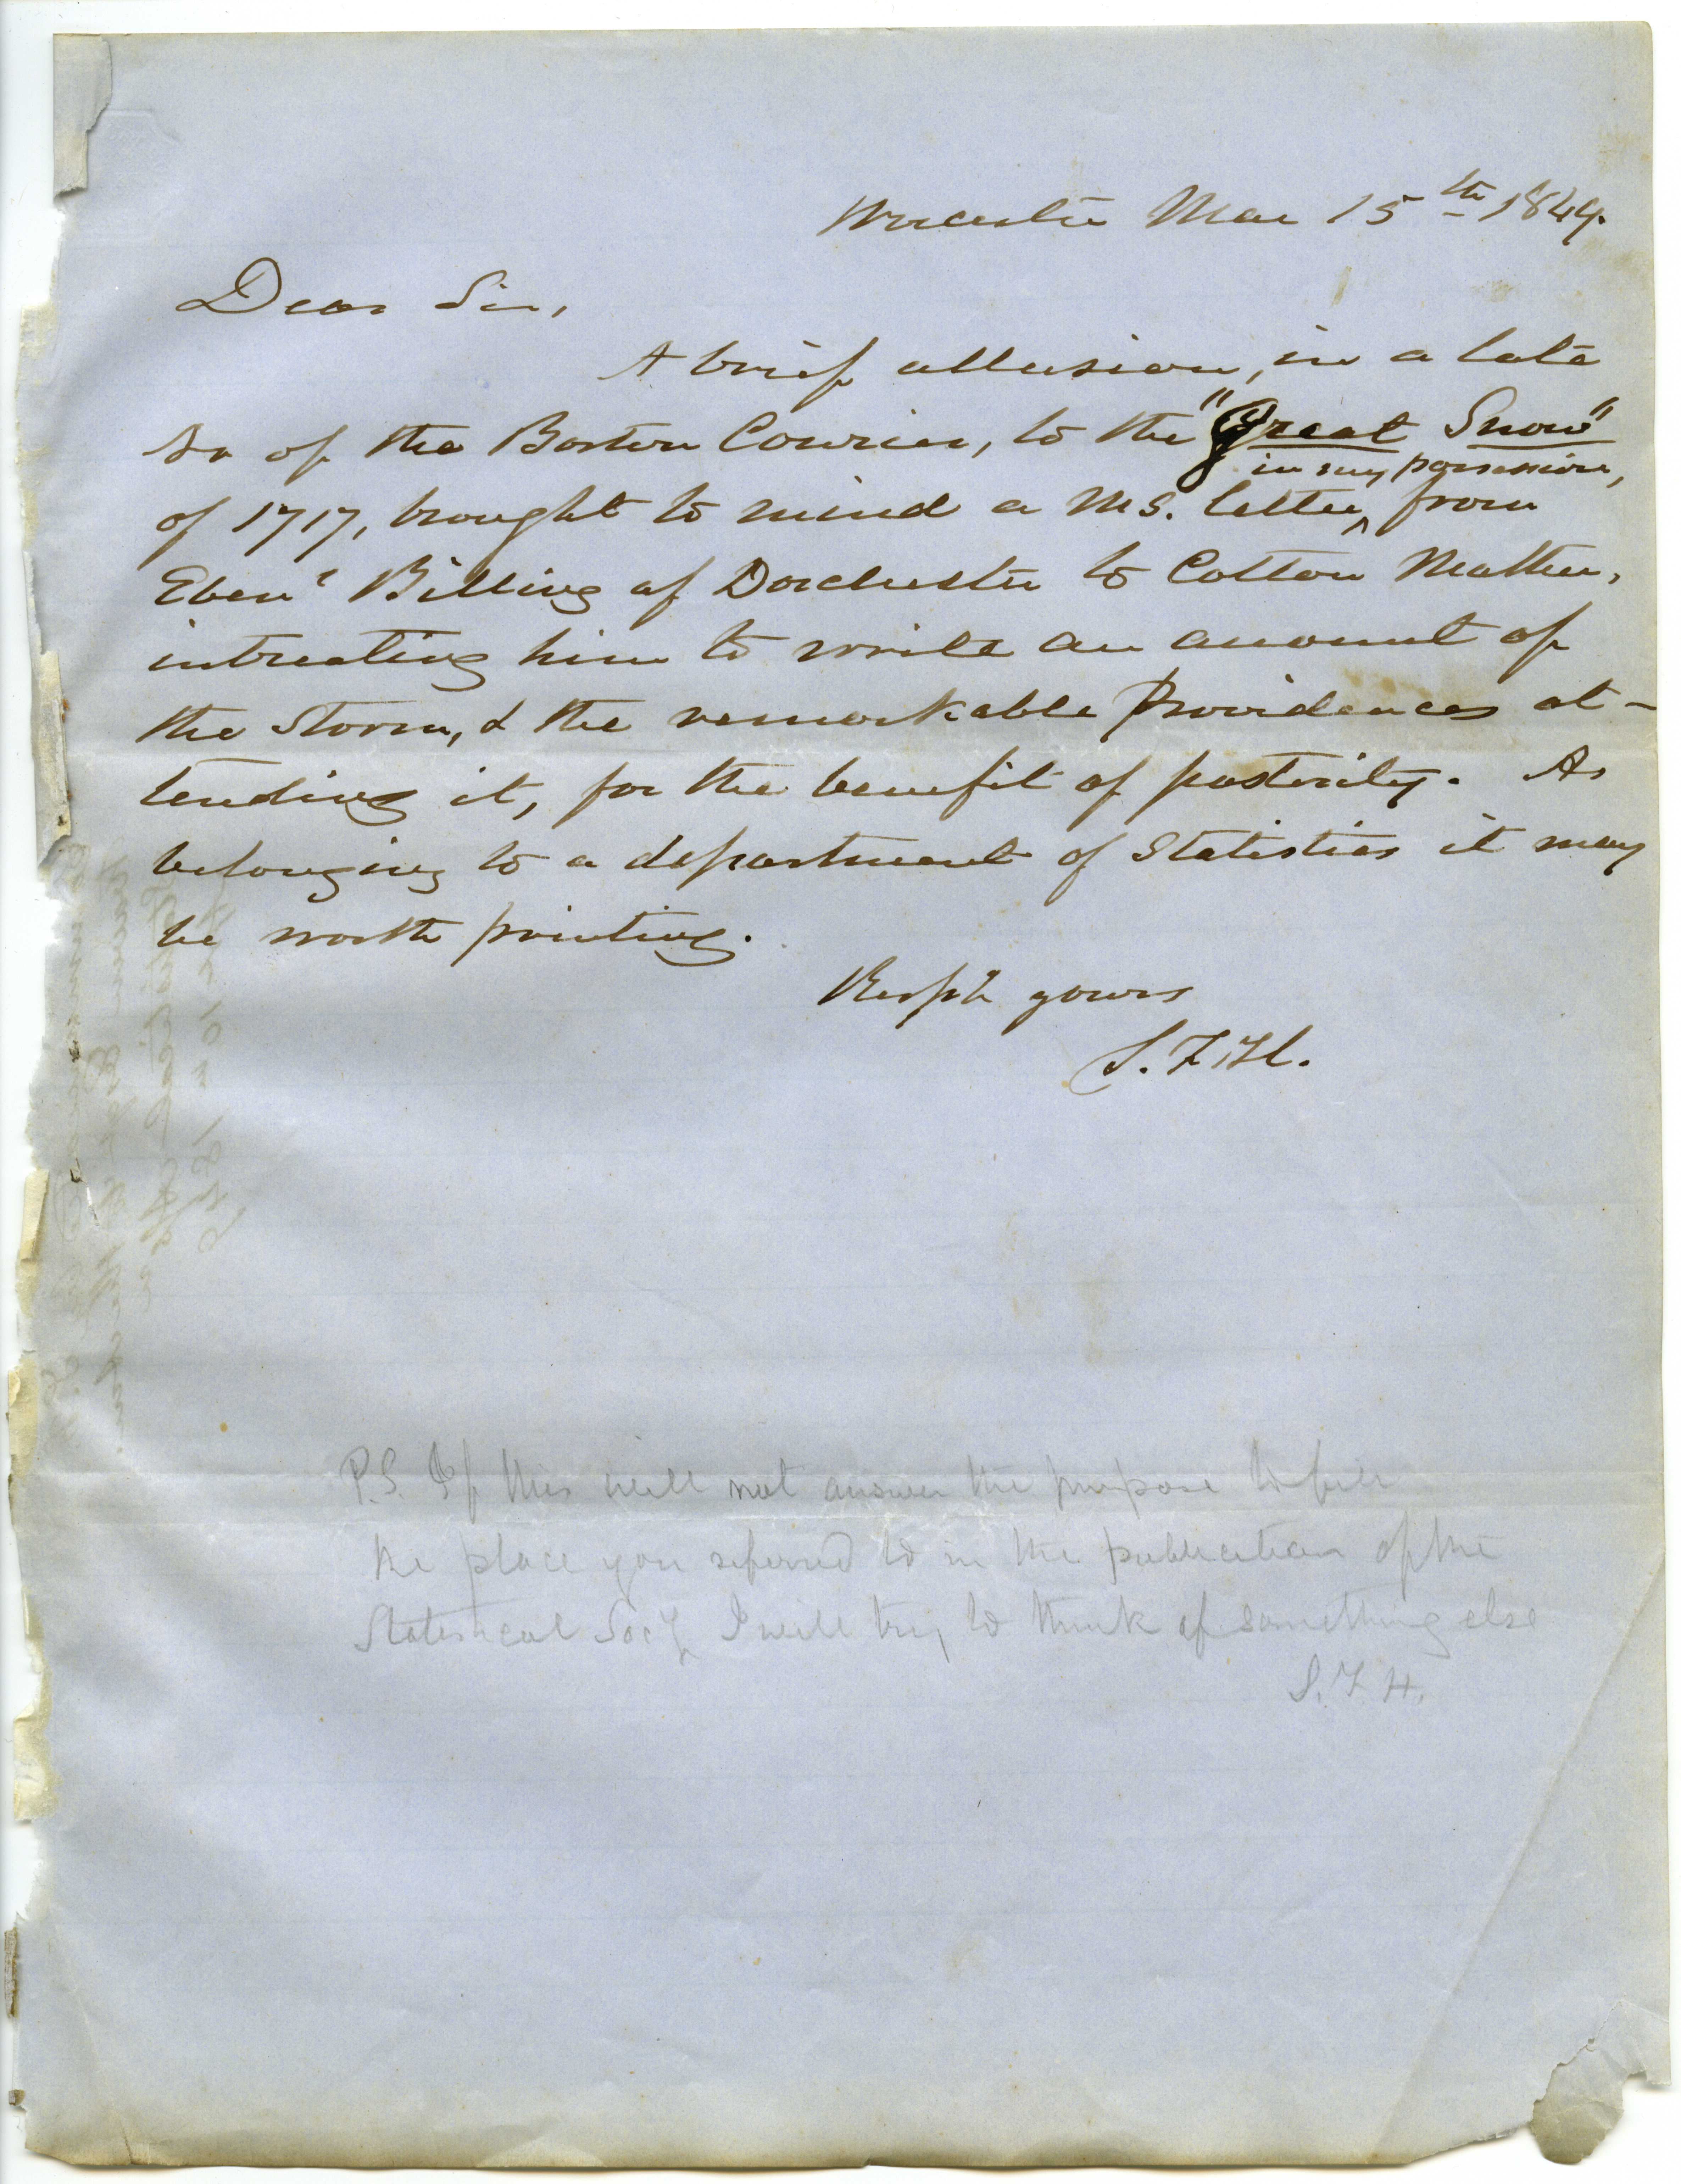 Worcester Mar 15th 1849.
Dear Sir,
A brief allusion, in a late
No of the Boston Courier, to the "Great Snow"
in my possession,
of 1717, brought to mind a MS. letter ^ from
Ebenr Billing of Dorchester to Cotton Mather,
intreating him to write an account of
the Storm, & the remarkable Providences at-
tending it, for the benefit of posterity. As
belonging to a department of Statistics it may
be worth printing.
Respy yours
S. F. H.
P.S. If this will not answer the purpose to fill
the place you referred to in the publication of the
Statistical Socy I will try to think of something else
S. F. H.